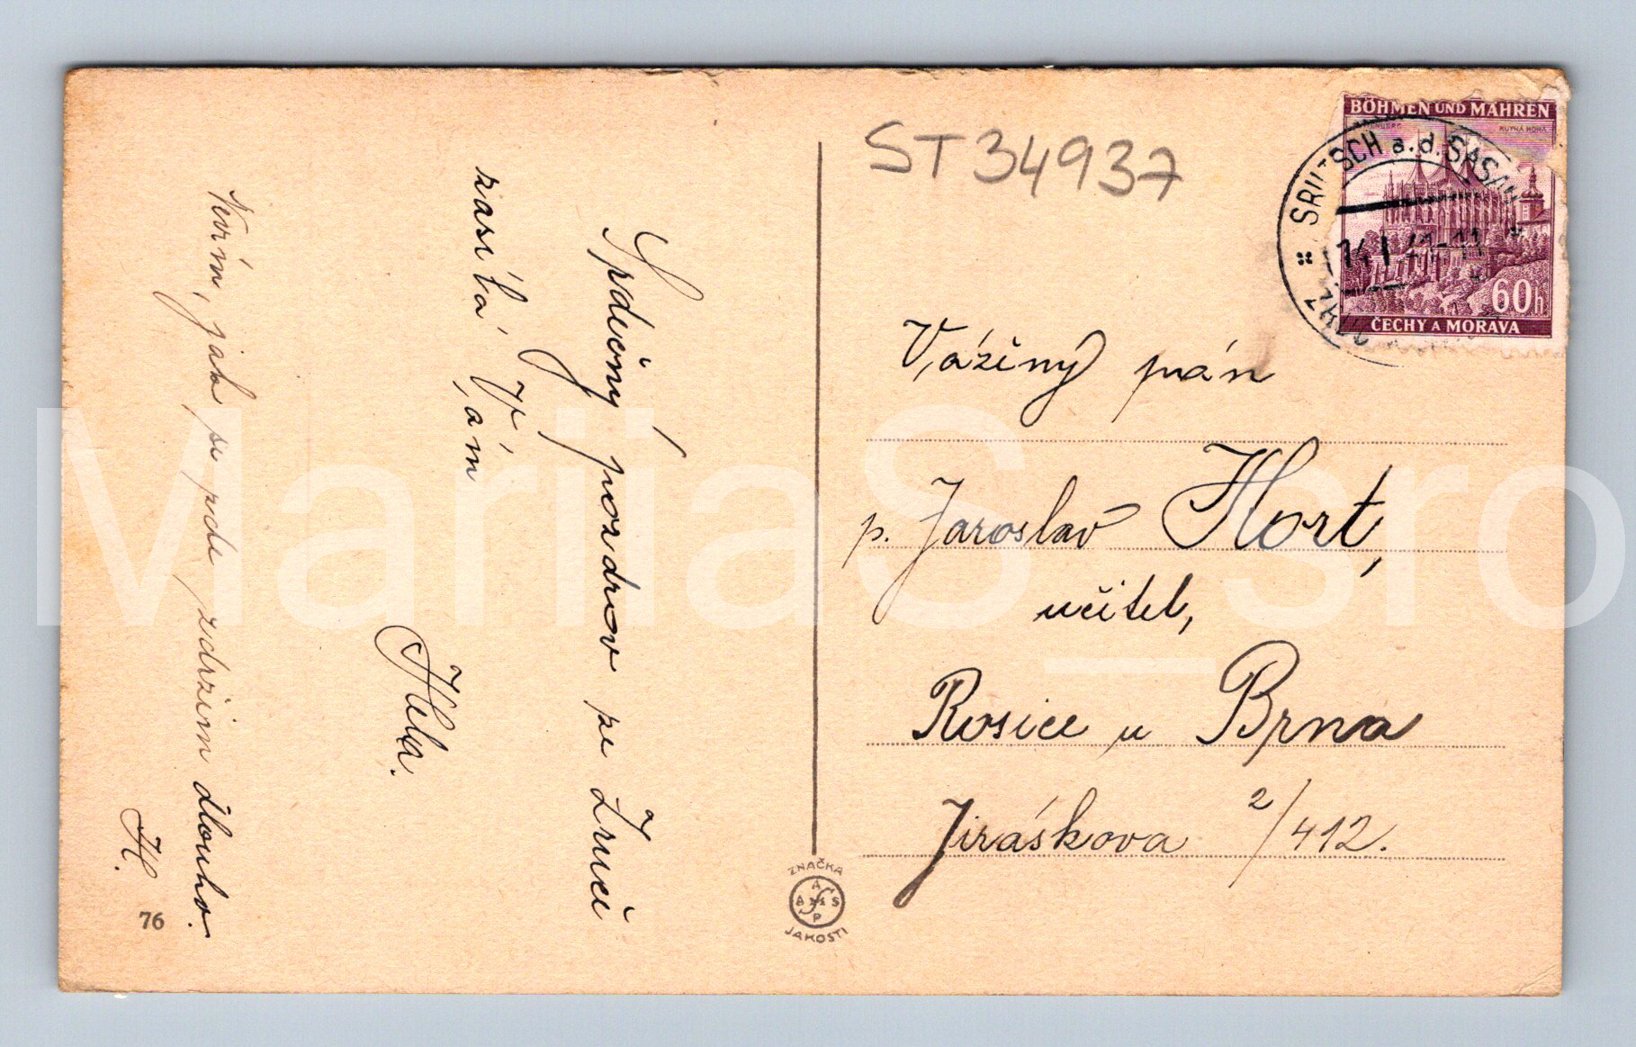 Srdečný pozdrav ze Zruče
zasílá Vám
Hela.
Nevím, jak se zde zdržím dlouho.
H.
76
ST 34937
BÖHMEN UND MÄHREN
KUTNÁ HORA
60h
ČECHY A MORAVA
SRUTSCH a.d. SASAU
14 I 41-11
Vážený pán
p. Jaroslav Hort,
učitel,
Rosice u Brna
Jiráskova 2/412.
ZNAČKA
JAKOSTI
MariiaS_sro